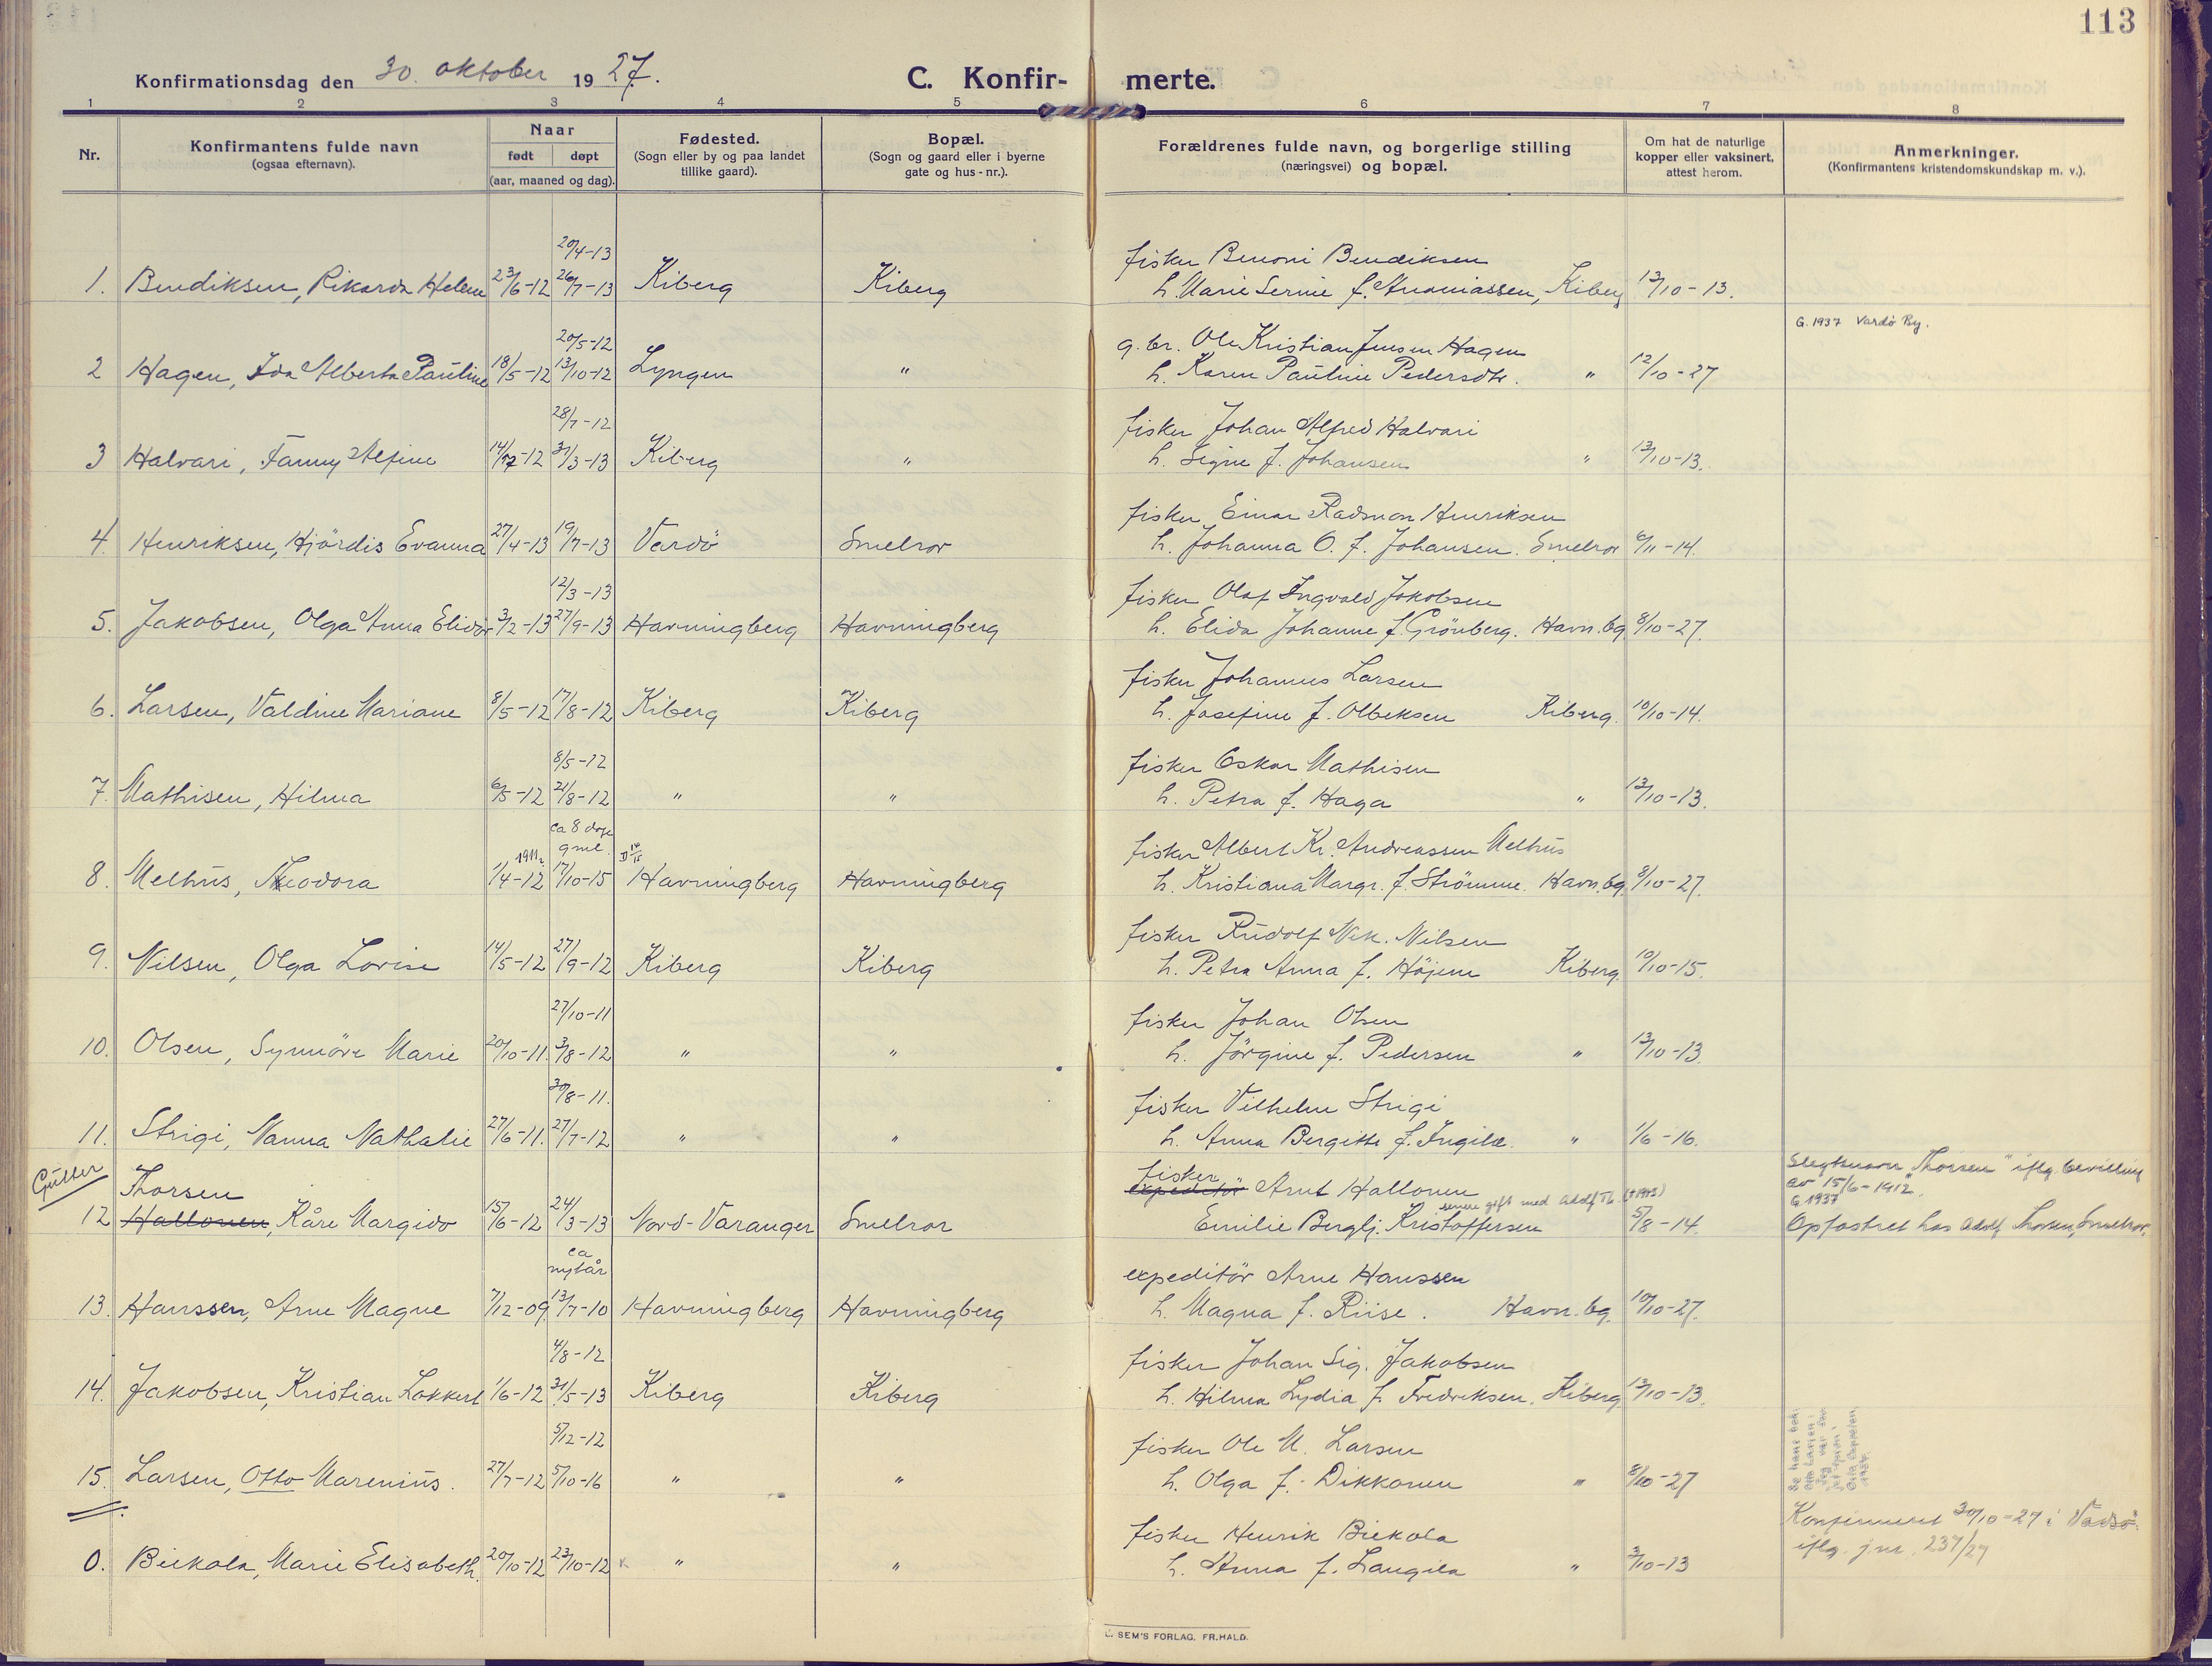 113
Konfirmationsdag den 30. oktober 1927. C. Konfir- merte.
1 2 3 4 5 6 7 8
Nr. Konfirmantens fulde navn (ogsaa efternavn). Naar født døpt (aar, maaned og dag). Fødested. (Sogn eller by og paa landet tillike gaard). Bopæl. (Sogn og gaard eller i byerne gate og hus-nr.). Forældrenes fulde navn, og borgerlige stilling (næringsvei) og bopæl. Om hat de naturlige kopper eller vaksinert, attest herom. Anmerkninger. (Konfirmantens kristendomskundskap m. v.).
20/4-13 fisker Benoni Bendiksen
1. Bendiksen, Rikarda Helene 23/6-12 26/7-13 Kiberg Kiberg h. Marie Serine f. Ananiassen, Kiberg 13/10-13.
G. 1937 Vardø By.
20/5-12 g.br. Ole Kristian Jensen Hagen
2 Hagen, Ida Alberta Pauline 18/5-12 13/10-12 Lyngen " h. Karen Pauline Pedersdtr. " 12/10-27
28/7-12 fisker Johan Alfred Halvari
3 Halvari, Fanny Alfine 14/7-12 31/3-13 Kiberg " h. Signe f. Johansen " 13/10-13.
fisker Einar Radmon Henriksen
4. Henriksen, Hjördis Evanna 27/4-13 19/7-13 Vardö Smelror h. Johanna O. f. Johansen. Smelror 6/11-14.
12/3-13 fisker Olaf Ingvald Jakobsen
5. Jakobsen, Olga Anna Elidor 3/2-13 27/9-13 Havningberg Havningberg h. Elida Johanne f. Grönberg. Havn.bg. 8/10-27.
fisker Johannes Larsen
6. Larsen, Valdine Mariane 8/5-12 17/8-12 Kiberg Kiberg h. Josefine f. Olbeksen Kiberg. 10/10-14.
8/5-12 fisker Oskar Mathisen
7. Mathisen, Hilma 6/5-12 21/8-12 " " h. Petra f. Haga " 13/10-13.
ca 8 dage gml. fisker Albert Kr. Andreassen Melhus
1911
8. Melhus, Theodora 1/4-12 17/10-15 Havningberg Havningberg h. Kristiana Margr. f. Strömme. Havn.bg. 8/10-27.
fisker Rudolf Nik. Nilsen
9. Nilsen, Olga Lovise 14/5-12 27/9-12 Kiberg Kiberg h. Petra Anna f. Höjem Kiberg. 10/10-15.
27/10-11 fisker Johan Olsen
10. Olsen, Synnöve Marie 20/10-11. 3/8-12 " " h. Jörgine f. Pedersen " 13/10-13.
30/8-11. fisker Vilhelm Strigi
11. Strigi, Nanna Nathalie 27/6-11. 27/7-12 " " h. Anna Bergitte f. Ingilæ. " 1/6-16.
Gutter Thorsen fisker Slegtsnavn "Thorsen" iflg. bevilling
expeditör Arnt Hallonen av 15/6-1912.
senere gift med Adolf Th. G. 1937
12 Hallonen, Kåre Margido 15/6-12 24/3-13 Nord-Varanger Smelror Emilie Berglj. Kristoffersen 5/8-14. Opfostret hos Adolf Thorsen, Smelror.
ca nytår expeditör Arne Hanssen
13. Hanssen, Arne Magne 7/12-09. 13/7-10 Havningberg Havningberg h. Magna f. Riise. Havn.bg. 10/10-27.
4/8-12 fisker Johan Sig. Jakobsen
14. Jakobsen, Kristian Lokkert 1/6-12 31/5-13 Kiberg Kiberg h. Hilma Lydia f. Fredriksen. Kiberg 13/10-13.
5/12-12 fisker Ole M. Larsen
15. Larsen, Otto Marenius. 27/7-12 5/10-16 " " h. Olga f. Dikkonen " 8/10-27
fisker Henrik Biekola Konfirmeret 30/10-27 i Vadsö
0. Biekola, Marie Elisabeth. 20/10-12 23/10-12 " " h. Anna f. Langila " 3/10-13 iflg. jnr. 237/27
SEM'S FORLAG, FR.HALD.